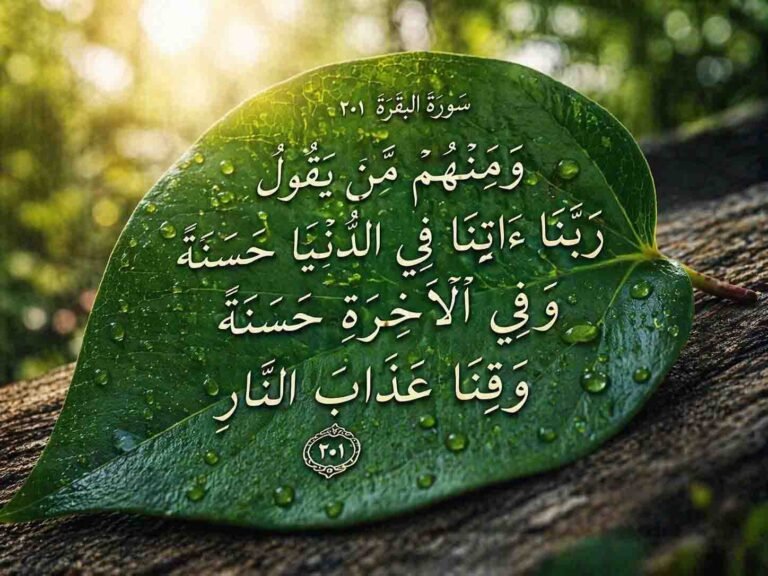 سَورَةَ البَقَرَةَ ٢٠١
وَمِنْهُمْ مَّنَ يَقُولُ
رَبَّنَا ءَاتِنَا فِي الدُّنِيَا حَسَنَةً
وَفِي الْآخِرَةِ حَسَنَةً
وَقِنَا عَذَابَ النَّارِ
٢٠١